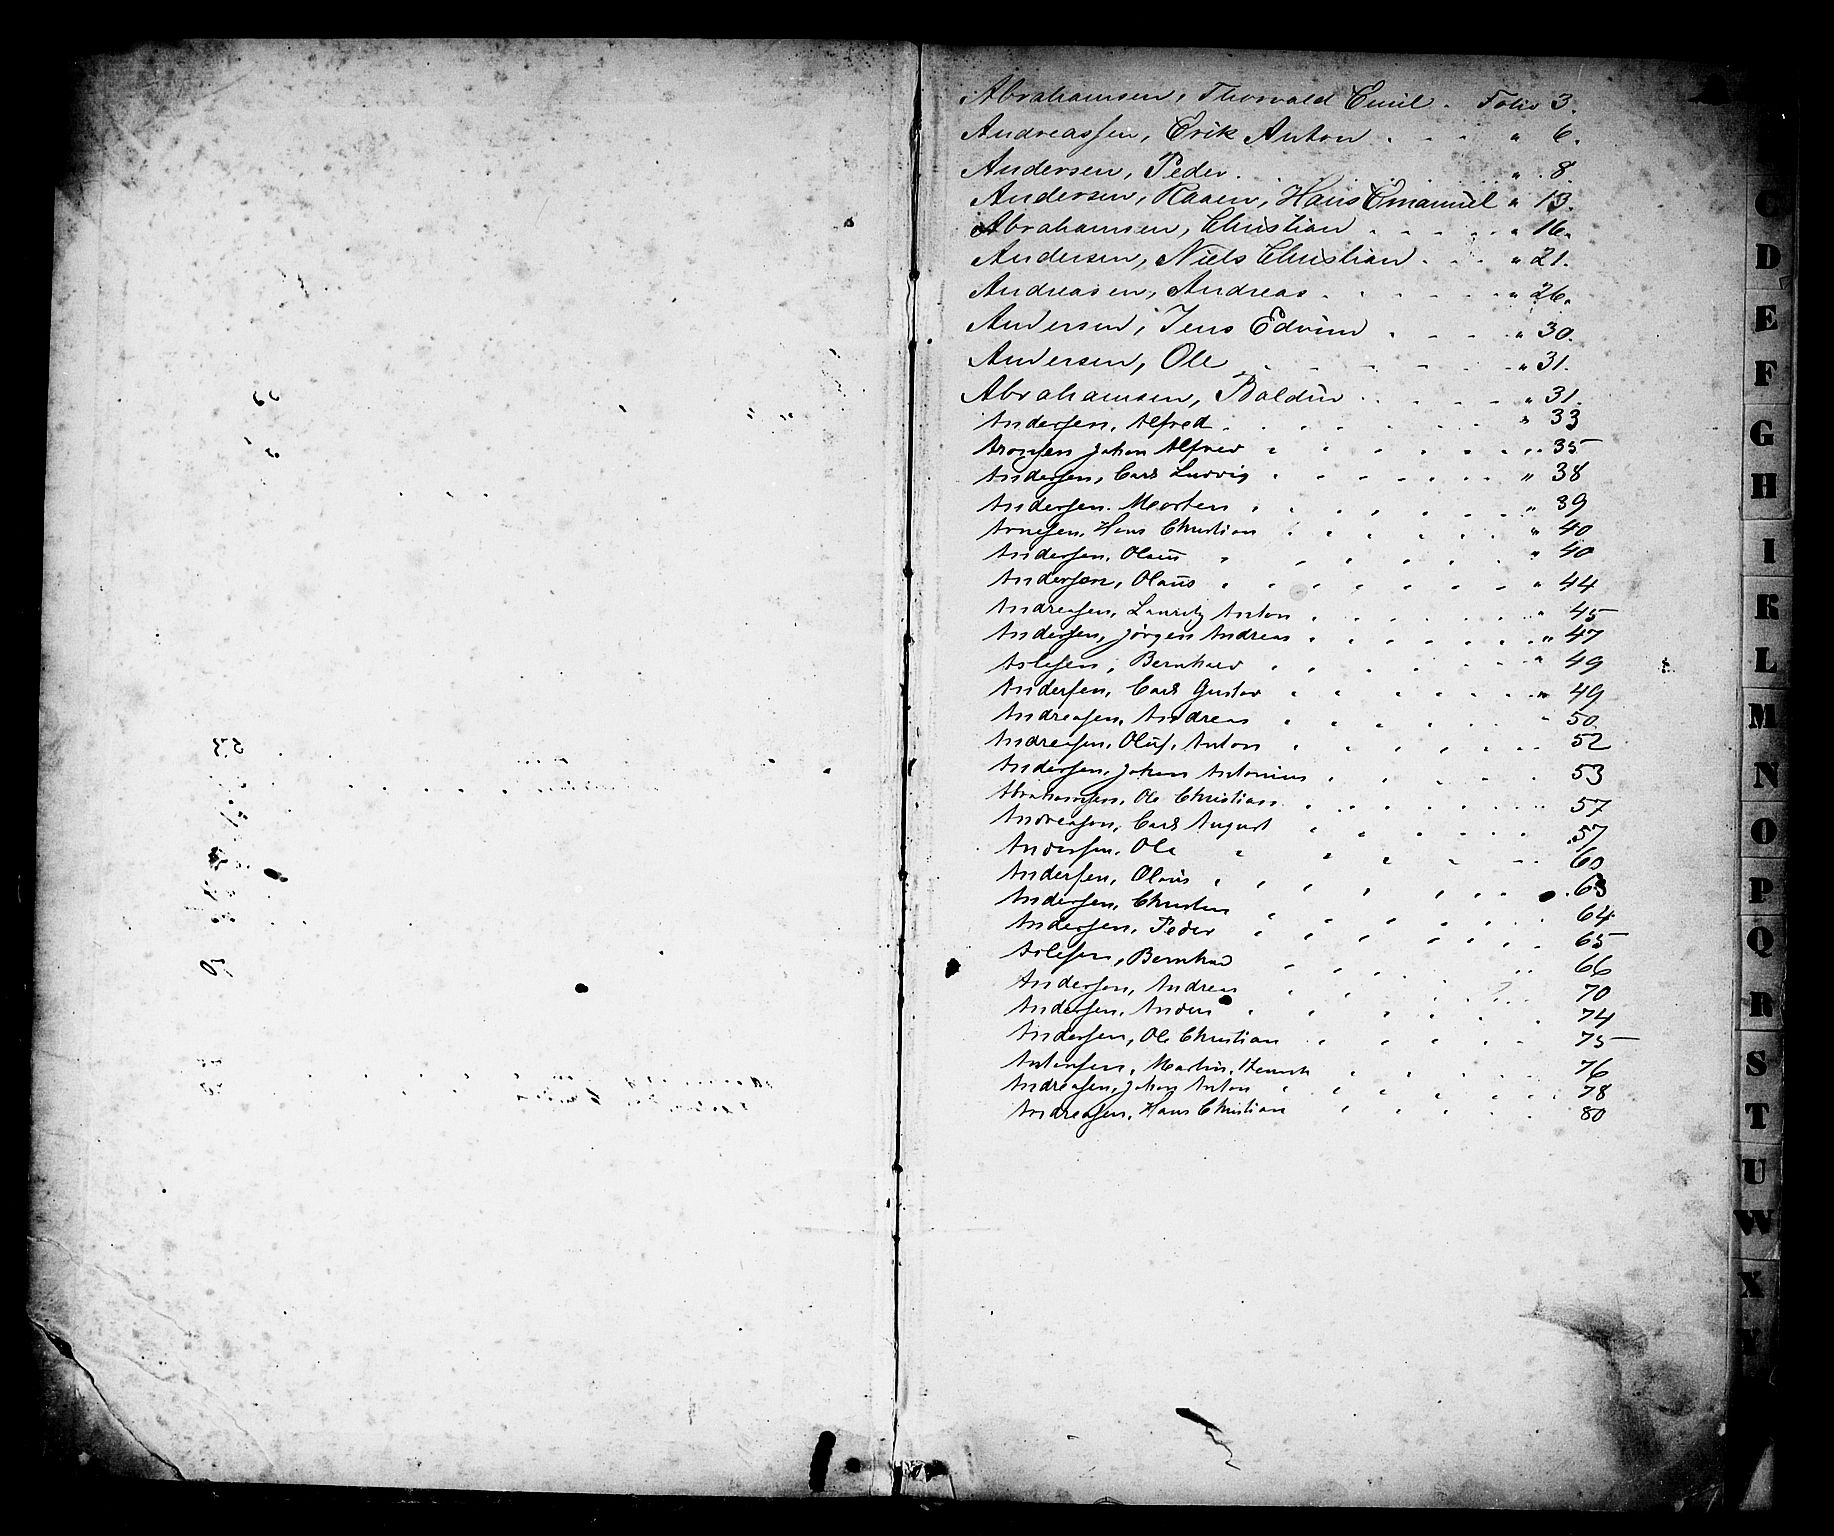 Abrahamsen, Thorvald Emil. Folio 3.
Andreassen, Erik Anton . . . . " 6.
Andersen, Peder. . . . . " 8.
Andersen, Raaen, Hans Emanuel " 13.
Abrahamsen, Christian . . . . " 16.
Andersen, Niels Christian . . . " 21.
Andreasen, Andreas . . . . " 26.
Andersen, Jens Edvin . . . . " 30.
Andersen, Ole . . . . . " 31.
Abrahamsen, Baldur . . . . " 31.
Andersen, Alfred . . . . . " 33
Aronsen Johan Alfred . . . . " 35
Andersen, Carl Ludvig . . . . " 38
Andersen. Morten . . . . . " 39
Arnesen, Hans Christian . . . . " 40
Andersen, Olaus . . . . . " 40
Andersen, Olaus . . . . . " 44
Andreasen, Lauritz Anton . . . . " 45
Andersen, Jørgen Andreas . . . . " 47
Aslesen, Bernhard . . . . . " 49
Andersen, Carl Gustav . . . . " 49
Andreasen, Andreas . . . . " 50
Andreasen, Oluf, Anton . . . . 52
Andersen, Johan Antonius . . . . 53
Abrahamsen, Ole Christian . . . . 57
Andreasen, Carl August . . . . 57
Andersen, Ole . . . . . 60
Andersen, Olaus . . . . . 63
Andersen, Christen . . . . . 64
Andersen, Peder . . . . . 65
Aslesen, Bernhard . . . . 66
Andersen, Andreas . . . . 70
Andersen, Anders . . . . . 74
Andersen, Ole Christian . . . . 75
Antonsen, Martin, Henrik . . . . 76
Andreasen, Johan Anton . . . . 78
Andreasen, Hans Christian . . . . 80
C
D
E
F
G
H
I
K
L
M
N
O
P
Q
R
S
T
U
W
X
Y